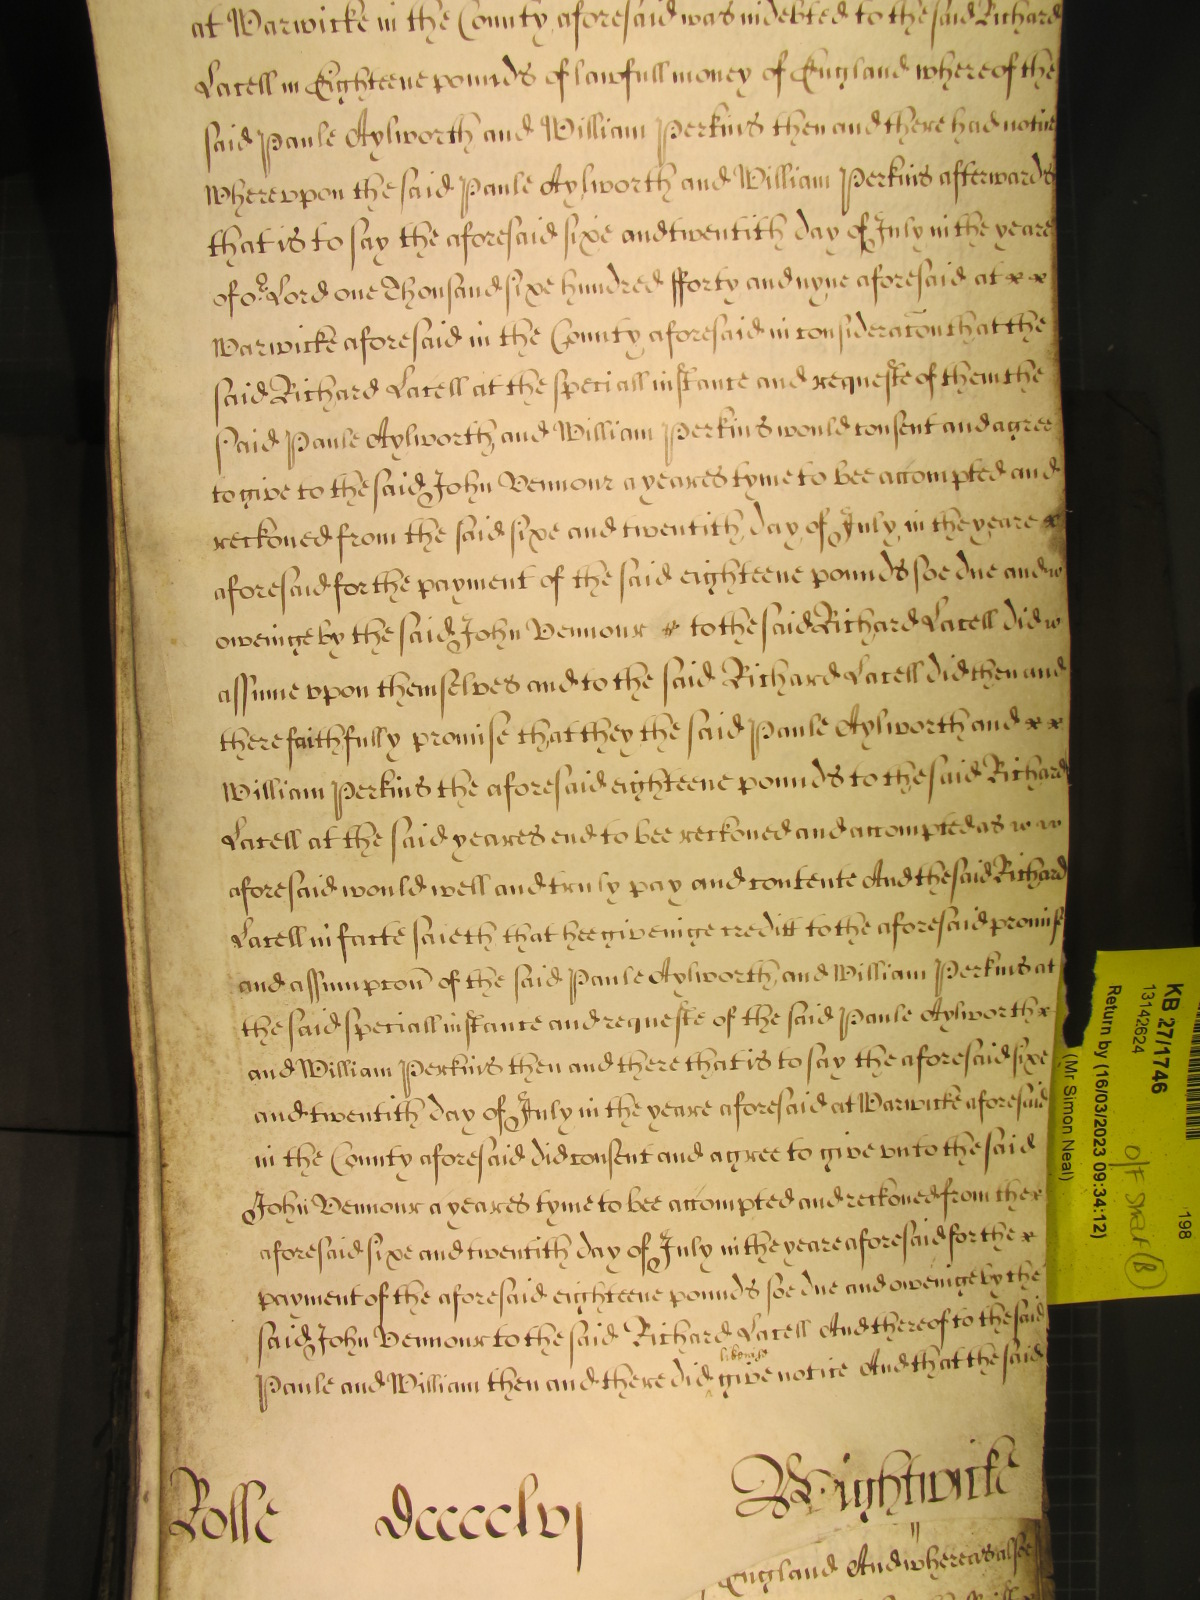 at Warwicke in the County aforesaid was indebted to the said Richard
Lacell in Eighteene pounds of lawfull money of England whereof the
said Paule Aylworth and William Perkins then and there had notice
Wherevpon the said Paule Aylworth and William Perkins afterwards
that is to say the aforesaid sixe and twentith day of July in the yeare
of or Lord one Thousand sixe hundred fforty and nyne aforesaid at x x
Warwicke aforesaid in the County aforesaid in consideracōn that the
said Richard Lacell at the speciall instance and requeste of them the
said Paule Aylworth and William Perkins would consent and agree
to give to the said John Vennour a yeares tyme to bee accompted and
reckoned from the said sixe and twentith day of July in the yeare x
aforesaid for the payment of the said eighteene pounds soe due and
oweinge by the said John Vennour x to the said Richard Lacell did
assume vpon themselves and to the said Richard Lacell did then and
there faithfully promise that they the said Paule Aylworth and x x
William Perkins the aforesaid eighteene pounds to the said Richard
Lacell at the said yeares end to bee reckoned and accompted as
aforesaid would well and truly pay and contente And the said Richard
Lacell in facte saieth that hee giveinge creditt to the aforesaid promise
and assumpcōn of the said Paule Aylworth and William Perkins at
the said speciall instance and requeste of the said Paule Aylworth x
and William Perkins then and there that is to say the aforesaid sixe
and twentith day of July in the yeare aforesaid at Warwicke aforesaid
in the County aforesaid did consent and agree to give vnto the said
John Vennour a yeares tyme to bee accompted and reckoned from the x
aforesaid sixe and twentith day of July in the yeare aforesaid for the x
payment of the aforesaid eighteene pounds soe due and oweinge by the
said John Vennour to the said Richard Lacell And thereof to the said
likewise
Paule and William then and there did give notice And that the said
Rolle dcccclvj Wightwicke
England And whereas alsoe
KB 27/1746
13142624
Return by (16/03/2023 09:34:12)
(Mr Simon Neal)
198
O/F
(B)